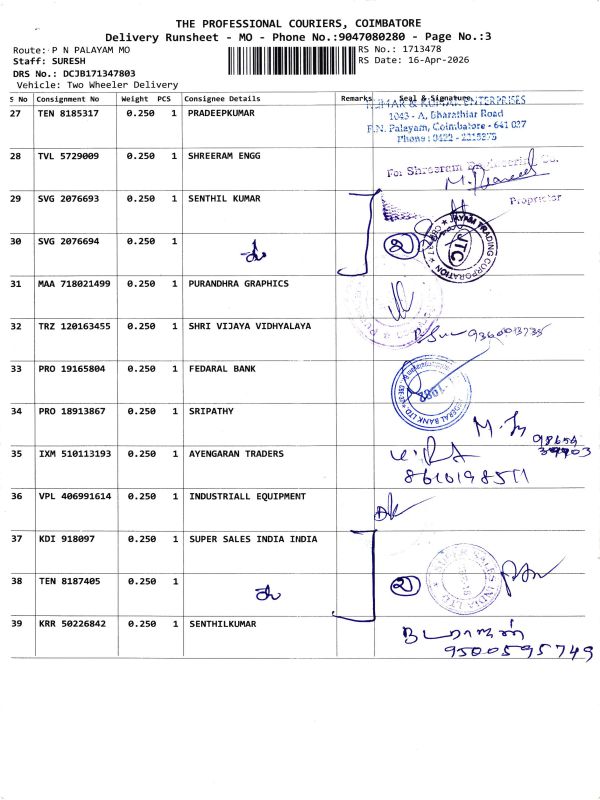 THE PROFESSIONAL COURIERS, COIMBATORE
Delivery Runsheet - MO - Phone No.:9047080280 - Page No.:3
Route: P N PALAYAM MO RS No.: 1713478
Staff: SURESH RS Date: 16-Apr-2026
DRS No.: DCJB171347803
Vehicle: Two Wheeler Delivery
S No Consignment No Weight PCS Consignee Details Remarks Seal & Signature
27 TEN 8185317 0.250 1 PRADEEPKUMAR
KUMAR & KUMAR ENTERPRISES
1043 - A, Bharathiar Road
P.N. Palayam, Coimbatore - 641 037
Phone : 0422 -
28 TVL 5729009 0.250 1 SHREERAM ENGG
For Shreeram Engineering Co.
Proprietor
29 SVG 2076693 0.250 1 SENTHIL KUMAR
30 SVG 2076694 0.250 1
2
JAYAM TRADING CORPORATION
JTC
31 MAA 718021499 0.250 1 PURANDHRA GRAPHICS
32 TRZ 120163455 0.250 1 SHRI VIJAYA VIDHYALAYA
33 PRO 19165804 0.250 1 FEDARAL BANK
FEDERAL BANK LTD
34 PRO 18913867 0.250 1 SRIPATHY
35 IXM 510113193 0.250 1 AYENGARAN TRADERS
8610198511
36 VPL 406991614 0.250 1 INDUSTRIALL EQUIPMENT
37 KDI 918097 0.250 1 SUPER SALES INDIA INDIA
38 TEN 8187405 0.250 1
2
SUPER SALES INDIA LTD
39 KRR 50226842 0.250 1 SENTHILKUMAR
9500595749